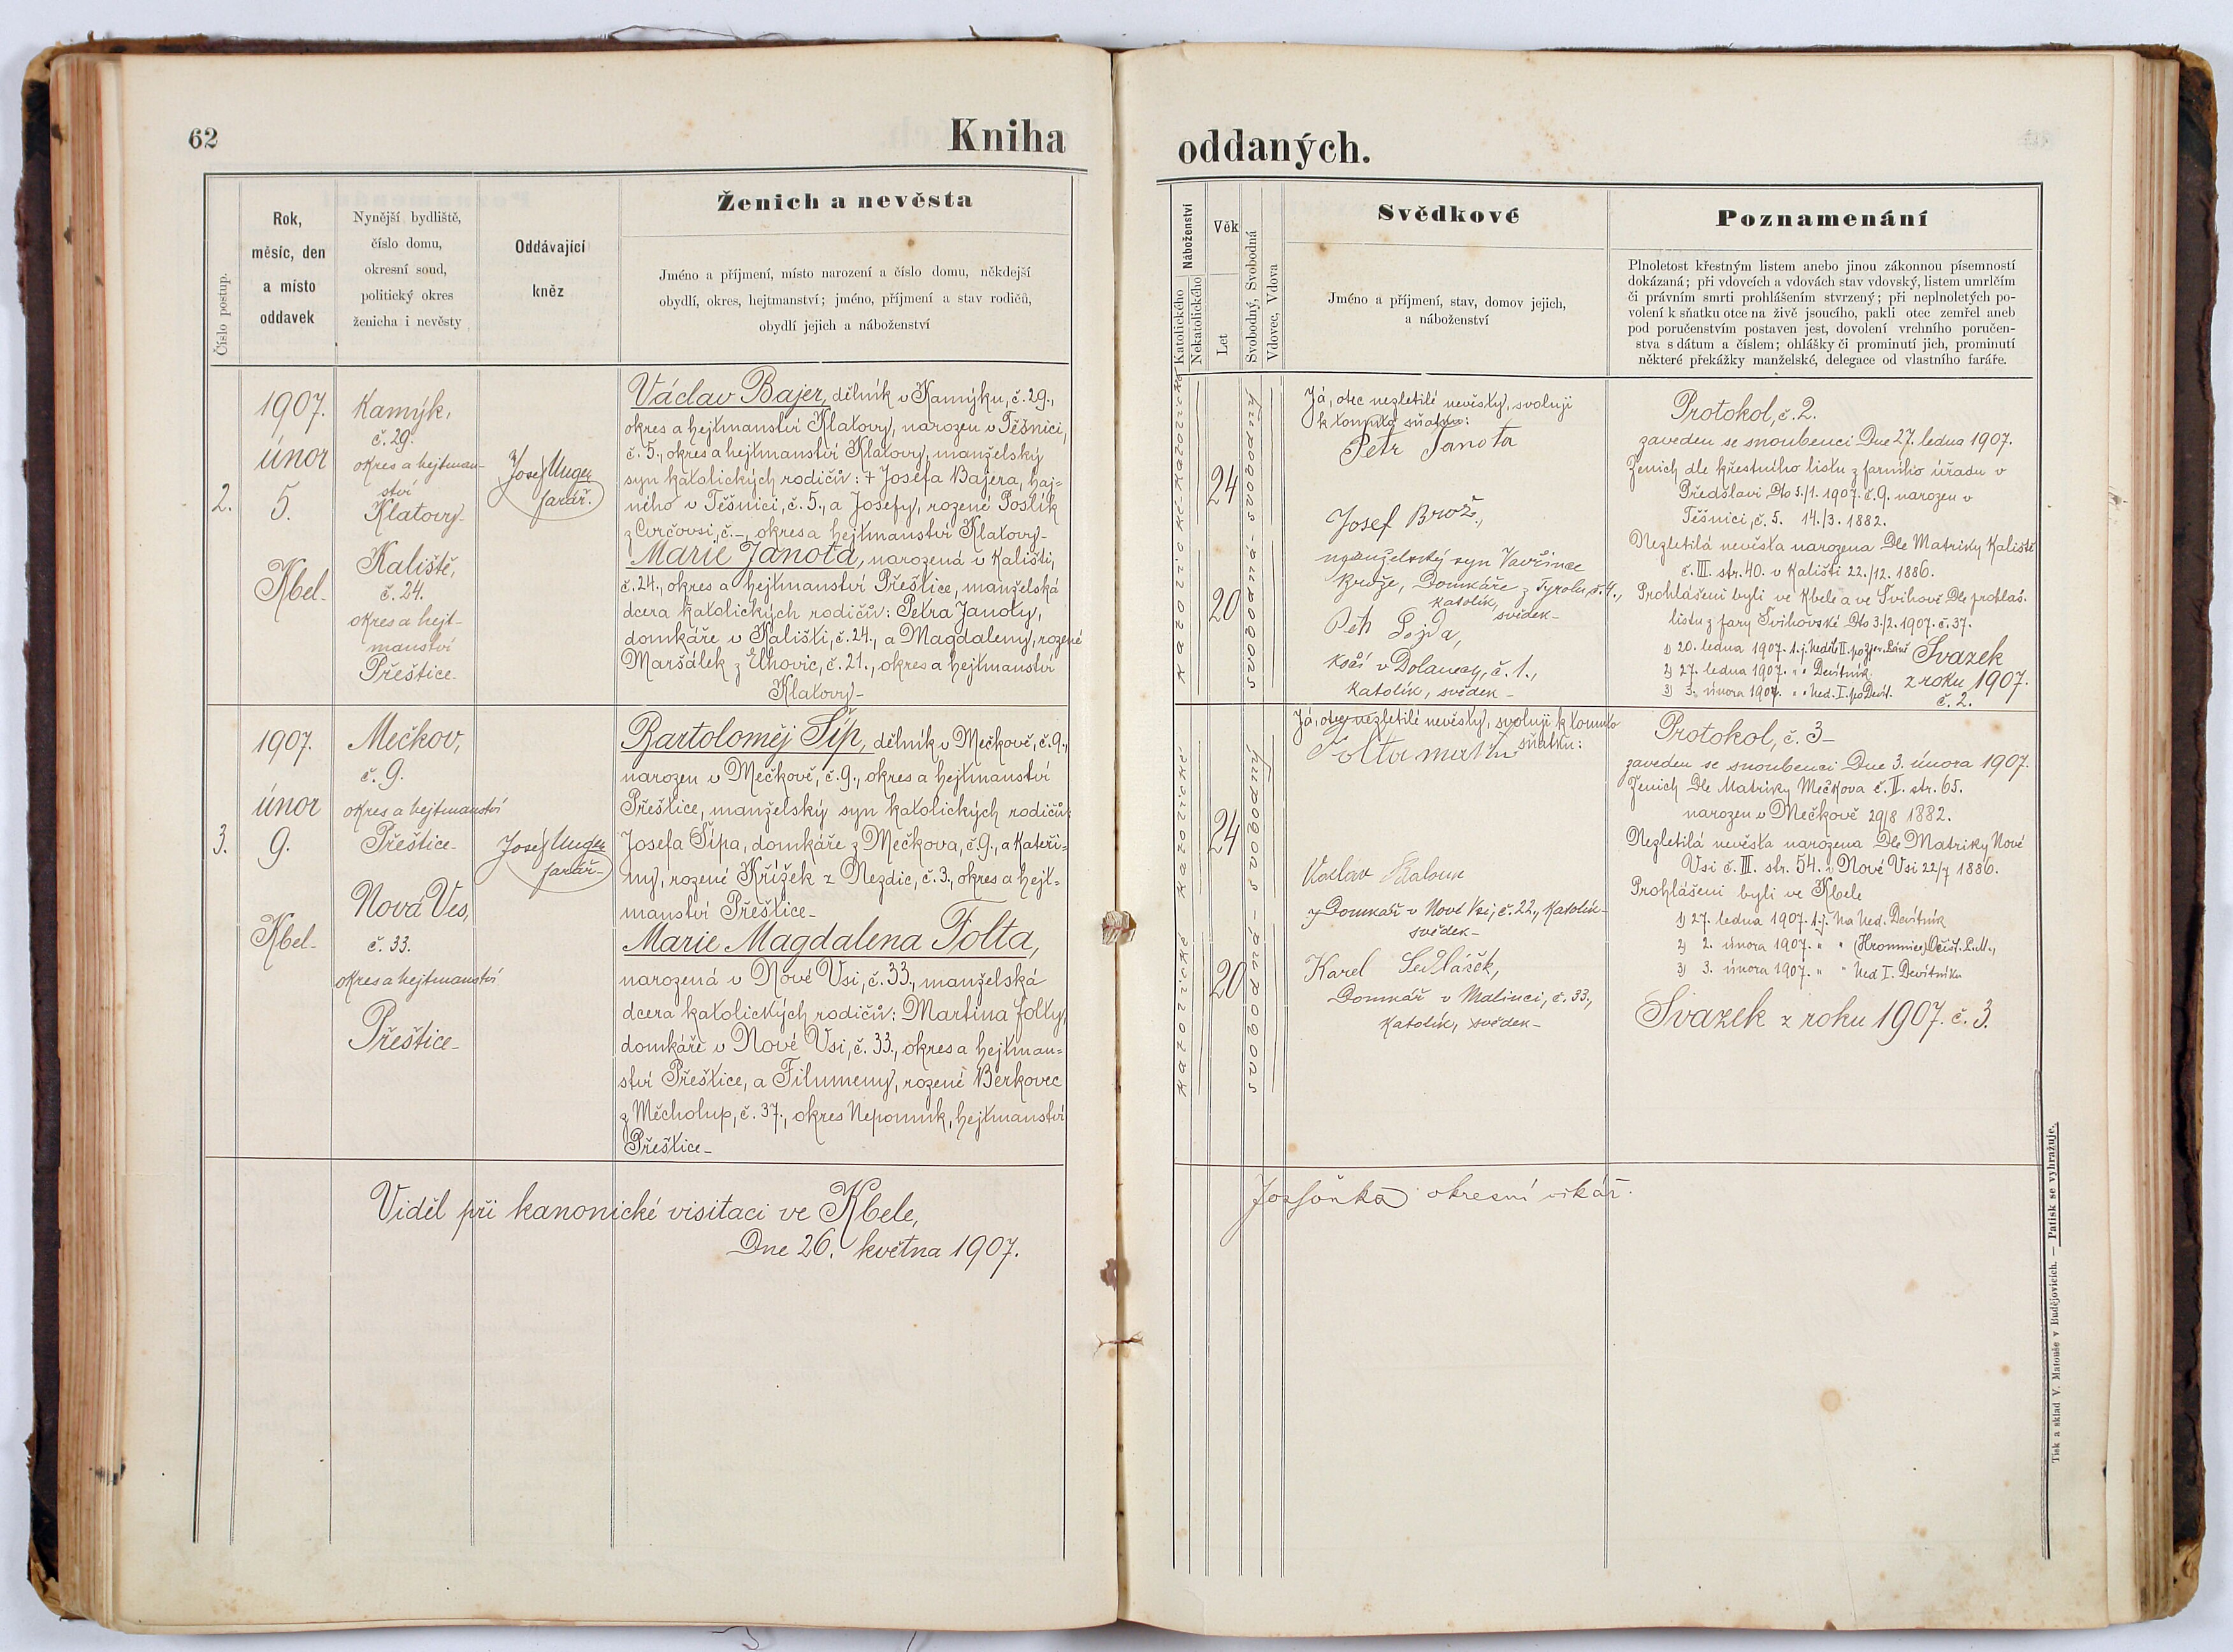 62
Kniha
oddaných.
Číslo postup.
Rok,
měsíc, den
a místo
oddavek
Nynější bydliště,
číslo domu,
okresní soud,
politický okres
ženicha i nevěsty
Oddávající
kněz
Ženich a nevěsta
Jméno a příjmení, místo narození a číslo domu, někdejší
obydlí, okres, hejtmanství; jméno, příjmení a stav rodičů,
obydlí jejich a náboženství
Náboženství
Katolického
Nekatolického
Věk
Let
Svobodný, Svobodná
Vdovec, Vdova
Svědkové
Jméno a příjmení, stav, domov jejich,
a náboženství
Poznamenání
Plnoletost křestným listem anebo jinou zákonnou písemností
dokázaná; při vdovcích a vdovách stav vdovský, listem umrlčím
či právním smrti prohlášením stvrzený; při neplnoletých po-
volení k sňatku otce na živě jsoucího, pakli otec zemřel aneb
pod poručenstvím postaven jest, dovolení vrchního poručen-
stva s dátum a číslem; ohlášky či prominutí jich, prominutí
některé překážky manželské, delegace od vlastního faráře.
2.
1907.
únor
5.
Kbel-
Kamýk,
č. 29.
okres a hejtman-
ství
Klatovy-
Kaliště,
č. 24.
okres a hejt-
manství
Přeštice-
Josef Unger
farář.
Václav Bajer, dělník v Kamýku, č. 29.,
okres a hejtmanství Klatovy, narozen v Těšnici,
č. 5., okres a hejtmanství Klatovy, manželský
syn katolických rodičův: + Josefa Bajera, haj-
ného v Těšnici, č. 5., a Josefy, rozené Poslík
z Cvrčovsi, č.-, okres a hejtmanství Klatovy-
Marie Janota, narozená v Kališti,
č. 24., okres a hejtmanství Přeštice, manželská
dcera katolických rodičův: Petra Janoty,
domkáře v Kališti, č. 24., a Magdaleny, rozené
Maršálek z Uhovic, č. 21., okres a hejtmanství
Klatovy-
katolické - katolické
24
20
svobodná - svobodný
Já, otec nezletilé nevěsty, svoluji
k tomuto sňatku:
Petr Janota
Josef Brož,
manželský syn Vavřince
Brože, Domkáře z Tyrolu, č. 4.,
katolík,
svědek-
Petr Lojda,
Kočí v Dolanech, č. 1.,
katolík, svědek-
Protokol, č. 2.
zaveden se snoubenci Dne 27. ledna 1907.
Ženich dle křestního listu z farního úřadu v
Předslavi Dto 5./1. 1907. č. 9. narozen v
Těšnici, č. 5. 14./3. 1882.
Nezletilá nevěsta narozena Dle Matriky Kaliště
č. III. str. 40. v Kališti 22./12. 1886.
Prohlášeni byli ve Kbele a ve Švihově Dle prohláš.
listu z fary Švihovské Dto 3./2. 1907. č. 37.
1) 20. ledna 1907. t. j. Neděle II. po Zjev. Páně
2) 27. ledna 1907. " " Devítník
3) 3. února 1907. " " Ned. I. po Devít.
Svazek
z roku 1907.
č. 2.
3.
1907.
únor
9.
Kbel-
Mečkov,
č. 9.
okres a hejtmanství
Přeštice-
Nová Ves,
č. 33.
okres a hejtmanství
Přeštice-
Josef Unger
farář-
Bartoloměj Šíp, dělník v Mečkově, č. 9.,
narozen v Mečkově, č. 9., okres a hejtmanství
Přeštice, manželský syn katolických rodičů:
Josefa Šípa, domkáře z Mečkova, č. 9., a Kateři-
ny, rozené Křížek z Nezdic, č. 3., okres a hejt-
manství Přeštice-
Marie Magdalena Tolta,
narozená v Nové Vsi, č. 33., manželská
dcera katolických rodičův: Martina Tolty,
domkáře v Nové Vsi, č. 33., okres a hejtman-
ství Přeštice, a Filumeny, rozené Berkovec
z Měcholup, č. 37., okres Nepomuk, hejtmanství
Přeštice-
katolické katolické
24
20
svobodná - svobodný
Já, otec nezletilé nevěsty, svoluji k tomuto
sňatku:
Tolta
Domkář v Nové Vsi, č. 22., Katolík-
svědek-
Karel Sedláček,
Domkář v Malinci, č. 33.,
katolík, svědek-
Protokol, č. 3-
zaveden se snoubenci Dne 3. února 1907.
Ženich Dle Matriky Mečkova č. II. str. 65.
narozen v Mečkově 29/8 1882.
Nezletilá nevěsta narozena Dle Matriky Nové
Vsi č. III. str. 54. v Nové Vsi 22/7 1886.
Prohlášeni byli ve Kbele
1) 27. ledna 1907. t. j. Na Ned. Devítník
2) 2. února 1907. " " (Hromnice) Očišť. P. M.,
3) 3. února 1907. " " Ned I. Devítníku
Svazek z roku 1907. č. 3.
Viděl při kanonické visitaci ve Kbele,
Dne 26. května 1907.
okresní vikář.
Tisk a sklad V. Matouše v Budějovicích. — Patisk se vyhražuje.